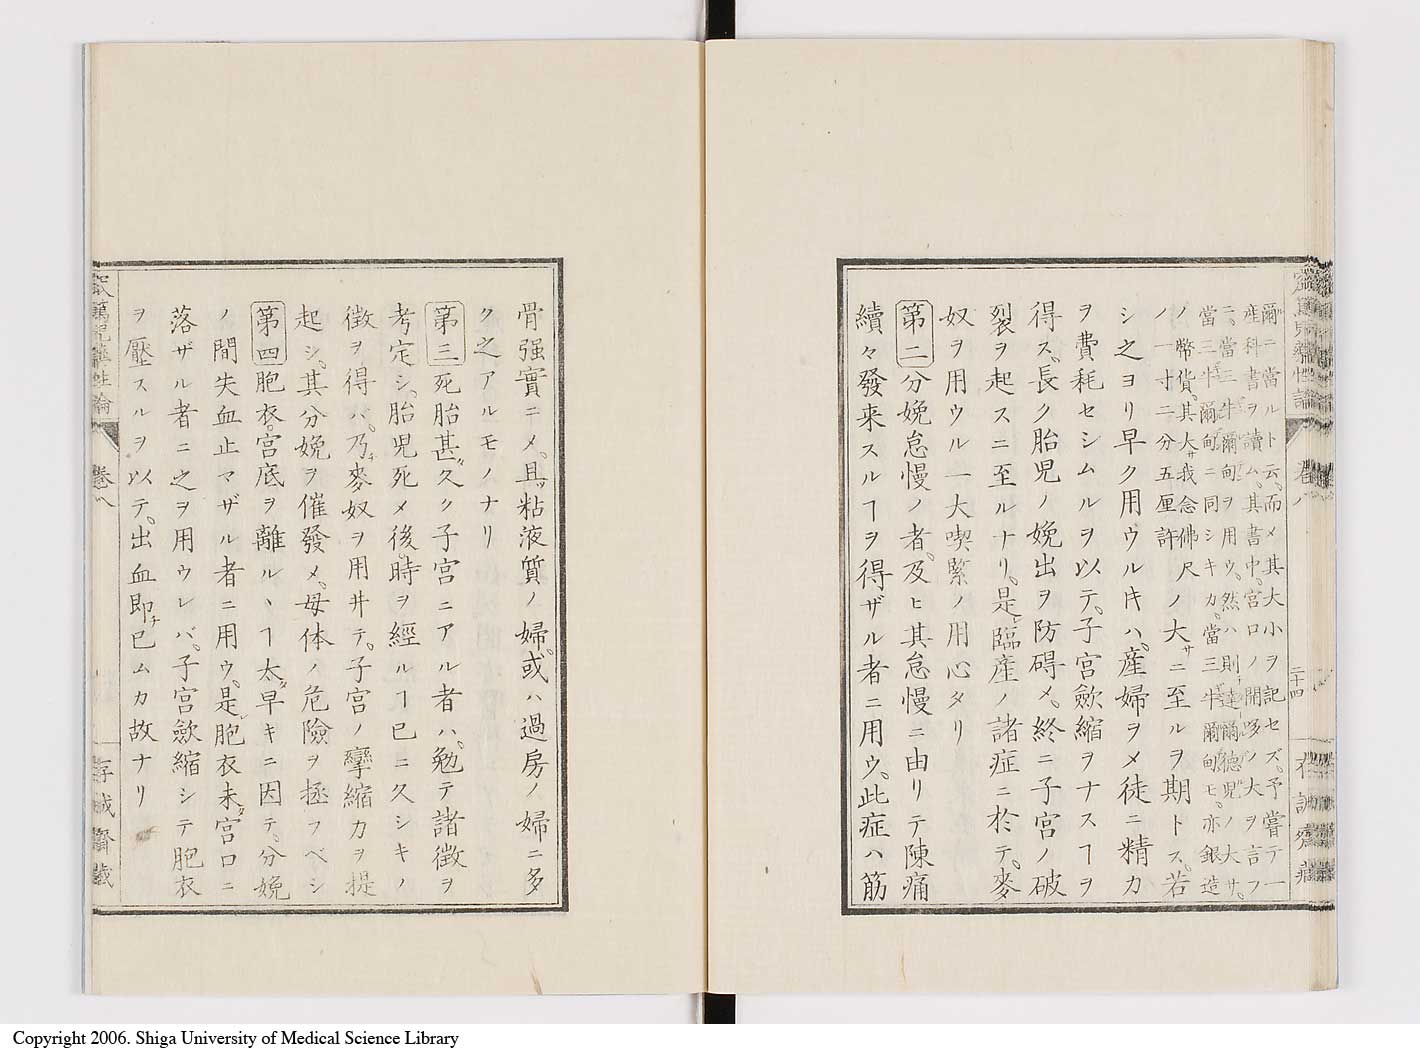 爾ニ當ルト云。而メ其大小ヲ記セズ。予嘗テ一
産科書ヲ讀ム。其書中。宮口ノ開哆ノ大ヲ言フ
ニ。當三半爾甸ヲ用ウ。然ハ則達爾德児ノ大サ。
當三半爾甸ニ同シキカ。當三半爾甸モ亦銀造
ノ幣貨。其大サ我念佛尺
ノ一寸二分五厘許ノ大サニ至ルヲ期トス。若
シ之ヨリ早ク用ウルキハ。産婦ヲメ徒ニ精力
ヲ費耗セシムルヲ以テ。子宮歛縮ヲナスヿヲ
得ス。長ク胎児ノ娩出ヲ防碍メ。終ニ子宮ノ破
裂ヲ起スニ至ルナリ。是レ臨産ノ諸症ニ於テ。麥
奴ヲ用ウル一大喫緊ノ用心タリ
第二 分娩怠慢ノ者。及ヒ其怠慢ニ由リテ陳痛
續々發来スルヿヲ得ザル者ニ用ウ。此症ハ筋
二十四
骨强實ニメ。且ツ粘液質ノ婦。或ハ過房ノ婦ニ多
ク之アルモノナリ
第三 死胎甚ダ久ク子宮ニアル者ハ。勉テ諸徴ヲ
考定シ。胎児死メ後。時ヲ經ルヿ已ニ久シキノ
徴ヲ得ハ。乃チ麥奴ヲ用井テ。子宮ノ攣縮力ヲ提
起シ。其分娩ヲ催發メ。母体ノ危險ヲ拯フベシ
第四 胞衣。宮底ヲ離ルヽヿ太ダ早キニ因テ。分娩
ノ間失血止マザル者ニ用ウ。是レ胞衣未ダ宮口ニ
落ザル者ニ之ヲ用ウレバ。子宮歛縮シテ胞衣
ヲ壓スルヲ以テ。出血即チ已ムカ故ナリ
窊篤児藥性論
卷八
存誠齋藏
Copyright 2006. Shiga University of Medical Science Library